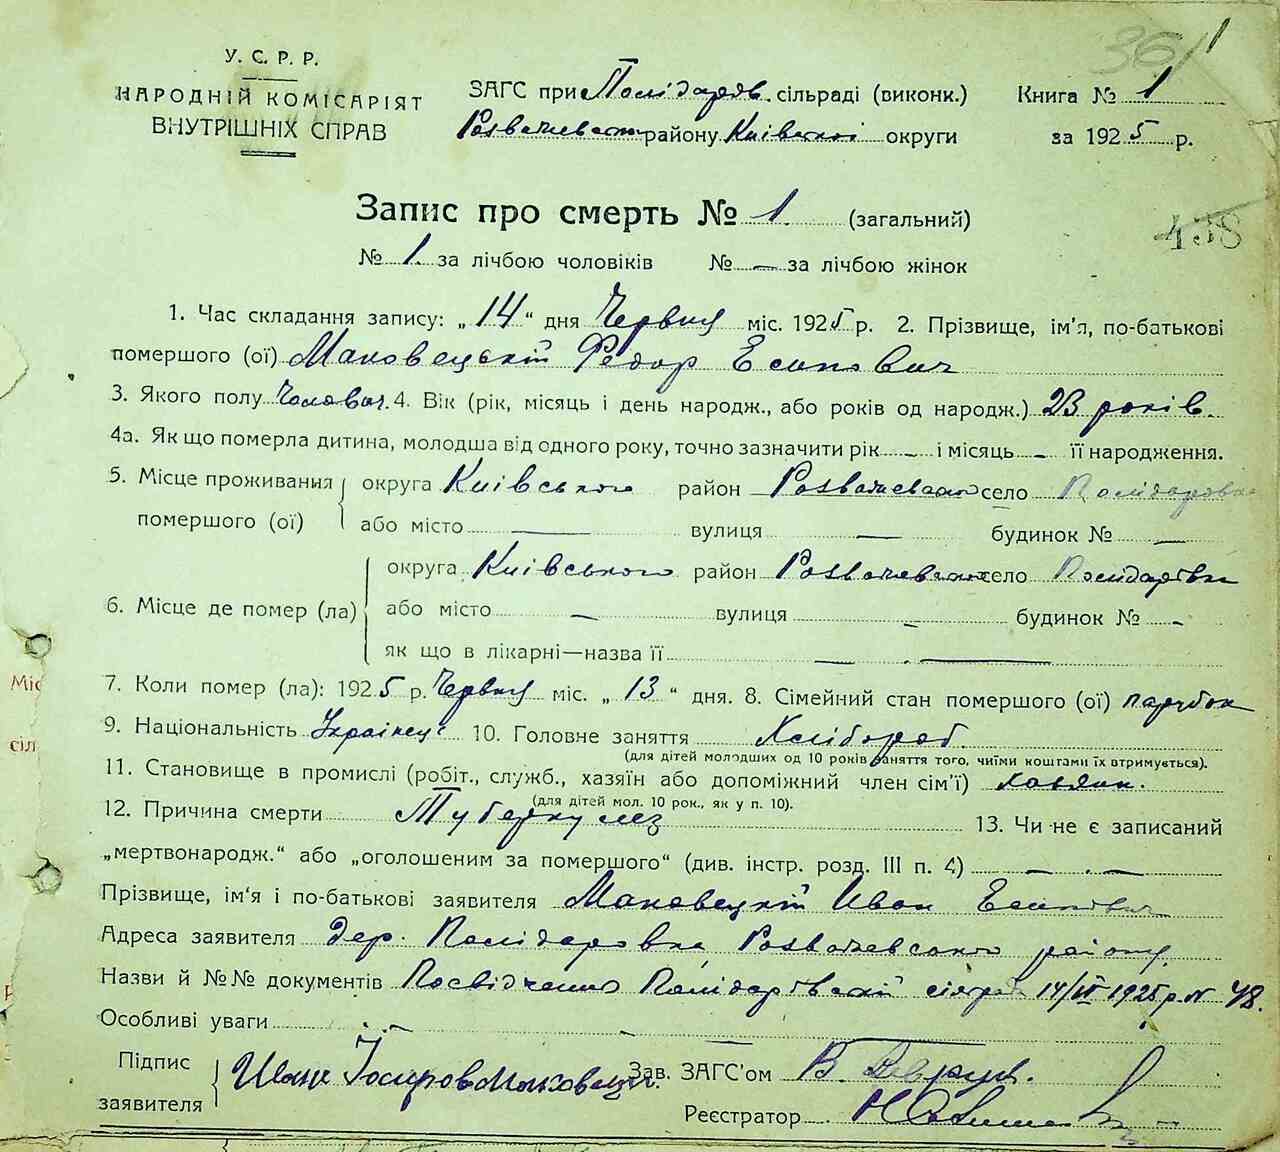 36 1
У. С. Р. Р.
НАРОДНІЙ КОМІСАРІЯТ
ВНУТРІШНІХ СПРАВ
ЗАГС при Полідаров. сільраді (виконк.) Книга № 1
Розважевськ району Київської округи за 1925 р.
Запис про смерть № 1. (загальний)
438
№ 1. за лічбою чоловіків № — за лічбою жінок
1. Час складання запису: „14“ дня Червня міс. 1925 р. 2. Прізвище, ім'я, по-батькові
помершого (ої) Маковецький Федор Есипович
3. Якого полу Чоловіч. 4. Вік (рік, місяць і день народж., або років од народж.) 23 років.
4а. Як що померла дитина, молодша від одного року, точно зазначити рік — і місяць — її народження.
5. Місце проживання округа Київського район Розважевського село Полідаровка
помершого (ої) або місто — вулиця — будинок № —
округа Київського район Розважевського село Полідарівка
6. Місце де помер (ла) або місто — вулиця — будинок № —
як що в лікарні—назва її —
7. Коли помер (ла): 1925 р. Червня міс. „13“ дня. 8. Сімейний стан помершого (ої) парубок
9. Національність Українець 10. Головне заняття Хлібороб.
(для дітей молодших од 10 років заняття того, чиїми коштами їх втримується).
11. Становище в промислі (робіт., служб., хазяїн або допоміжний член сім'ї) хазяин.
(для дітей мол. 10 рок., як у п. 10).
12. Причина смерти Туберкулез 13. Чи не є записаний
„мертвонародж.“ або „оголошеним за помершого“ (див. інстр. розд. III п. 4) — —
Прізвище, ім'я і по-батькові заявителя Маковецкій Иван Есипович
Адреса заявителя дер. Полідаровка Розважевського району
Назви й №№ документів Посвідчення Полідарівської сільради 14/VI 1925 р. № 48.
Особливі уваги —
Підпис
заявителя Иван Маковецький Зав. ЗАГС'ом В.
Реєстратор